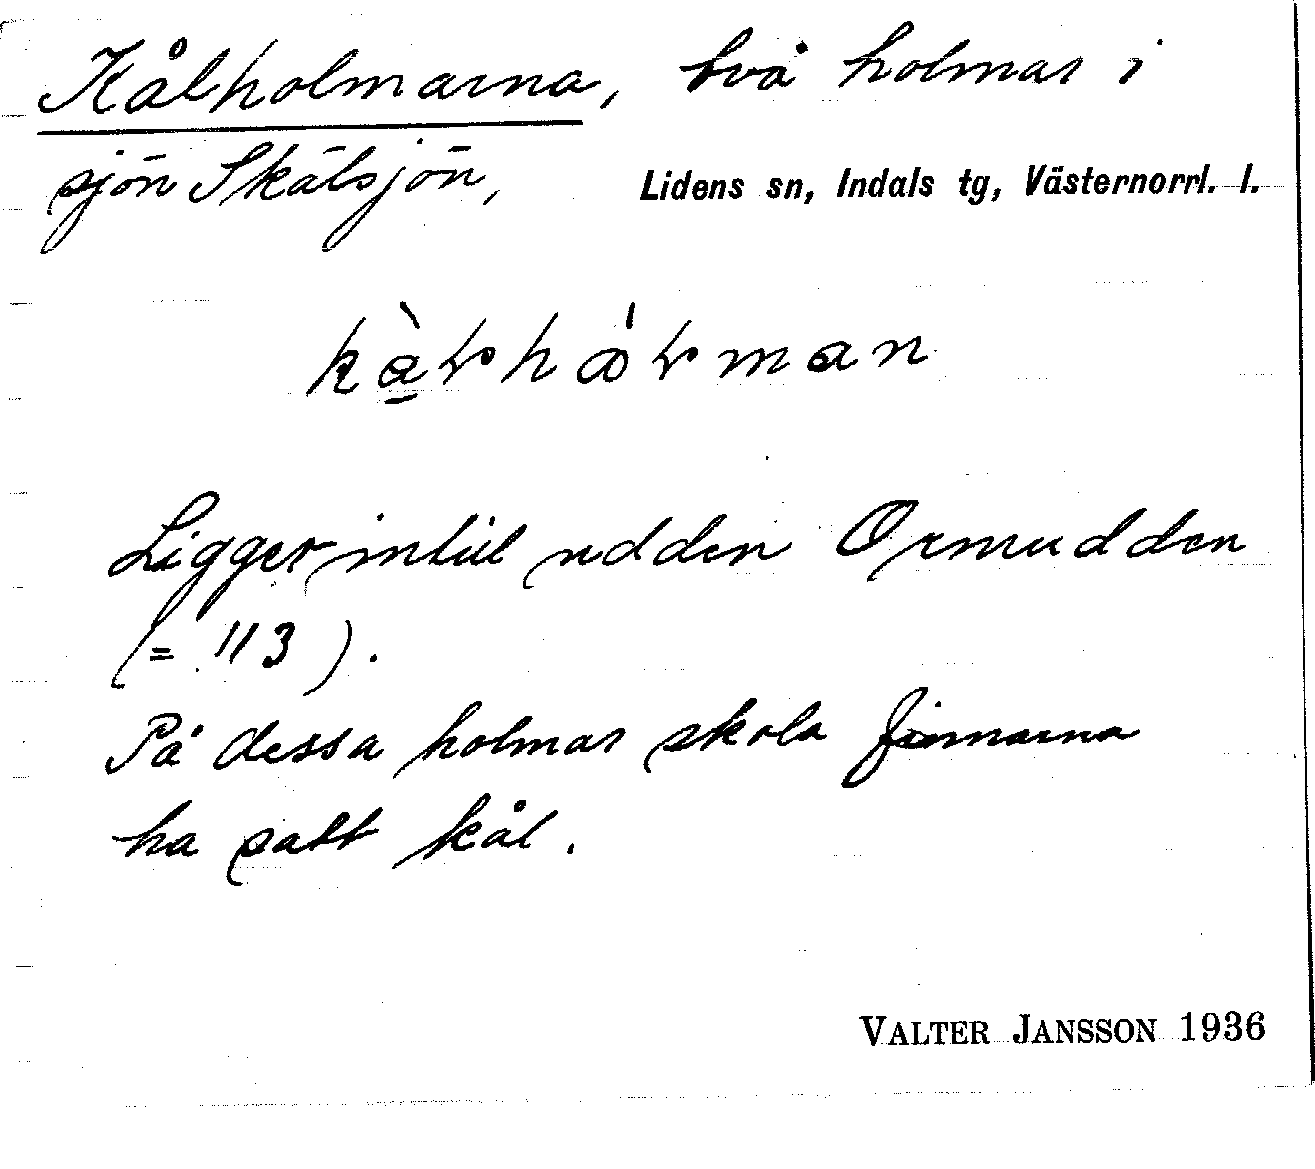 Kålholmarna, två holmar i
sjön Skälsjön, Lidens sn, Indals tg, Västernorrl. l.
Ligger intill udden Ormudden
(= 113).
På dessa holmar skola finnarna
ha satt kål.
VALTER JANSSON 1936